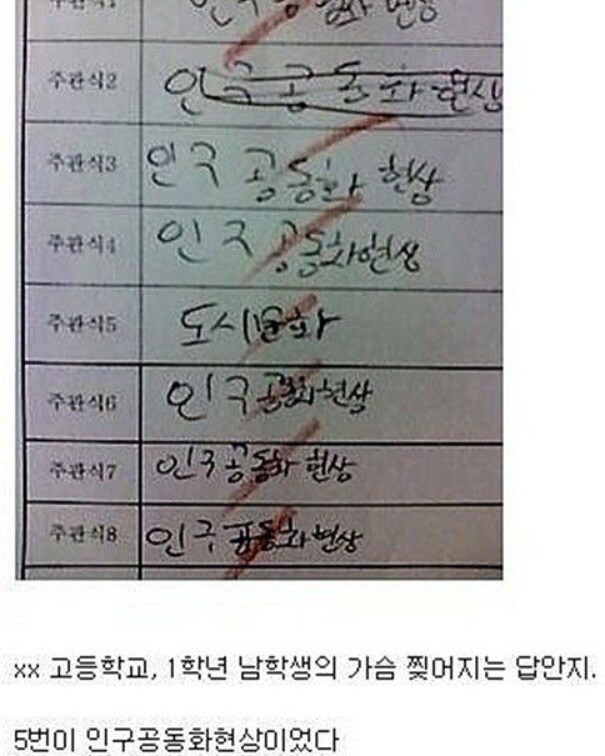 주관식1 인구공동화 현상
주관식2 인구공동화현상
주관식3 인구 공동화 현상
주관식4 인구 공동화현상
주관식5 도시문화
주관식6 인구공동화현상
주관식7 인구공동화 현상
주관식8 인구공동화현상
xx 고등학교, 1학년 남학생의 가슴 찢어지는 답안지.
5번이 인구공동화현상이었다